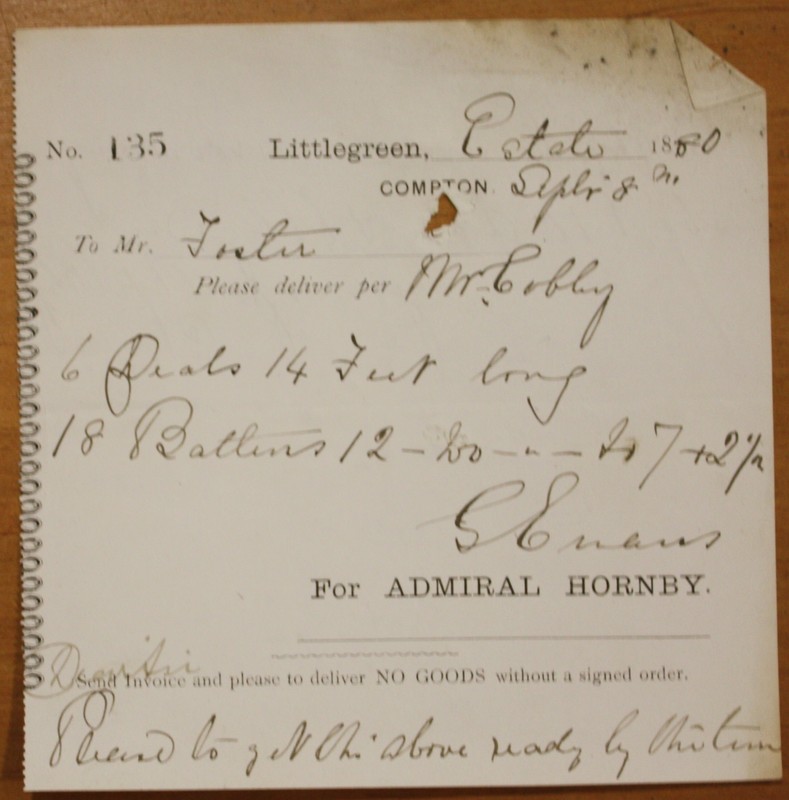 No. 135 Littlegreen, Estate 1880
COMPTON. Septr 8
To Mr. Foster
Please deliver per Mr. Cobby
6 Deals 14 Feet long
18 Battens 12 - Do - " - 7 x 2 1/2
G Evans
For ADMIRAL HORNBY.
Send Invoice and please to deliver NO GOODS without a signed order.
Please to get the above ready by the time